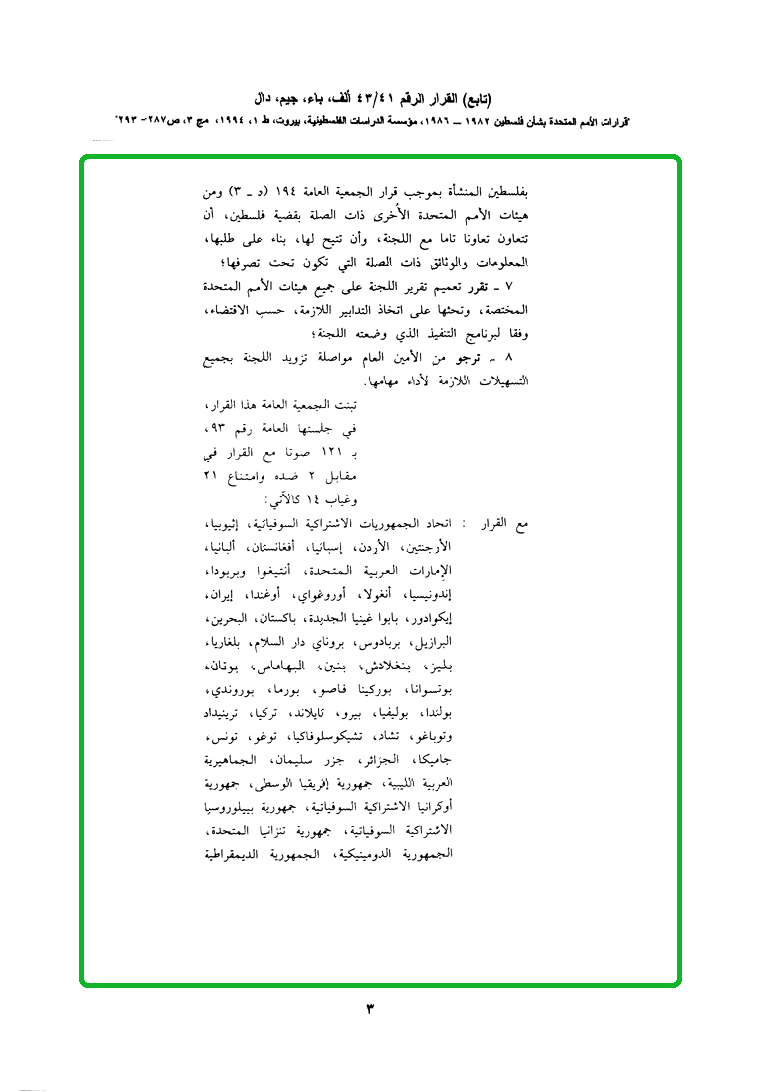 (تابع) القرار الرقم ٤٣/٤١ ألف، باء، جيم، دال
"قرارات الأمم المتحدة بشأن فلسطين ١٩٨٢ ــ ١٩٨٦، مؤسسة الدراسات الفلسطينية، بيروت، ط ١، ١٩٩٤، مج ٣، ص٢٨٧- ٢٩٣"
بفلسطين المنشأة بموجب قرار الجمعية العامة ١٩٤ (د ـ ٣) ومن
هيئات الأمم المتحدة الأُخرى ذات الصلة بقضية فلسطين، أن
تتعاون تعاونا تاما مع اللجنة، وأن تتيح لها، بناء على طلبها،
المعلومات والوثائق ذات الصلة التي تكون تحت تصرفها؛
٧ ـ تقرر تعميم تقرير اللجنة على جميع هيئات الأمم المتحدة
المختصة، وتحثها على اتخاذ التدابير اللازمة، حسب الاقتضاء،
وفقا لبرنامج التنفيذ الذي وضعته اللجنة؛
٨ ـ ترجو من الأمين العام مواصلة تزويد اللجنة بجميع
التسهيلات اللازمة لأداء مهامها.
تبنت الجمعية العامة هذا القرار،
في جلستها العامة رقم ٩٣،
بـ ١٢١ صوتا مع القرار في
مقابل ٢ ضده وامتناع ٢١
وغياب ١٤ كالآتي:
مع القرار : اتحاد الجمهوريات الاشتراكية السوفياتية، إثيوبيا،
الأرجنتين، الأردن، إسبانيا، أفغانستان، ألبانيا،
الإمارات العربية المتحدة، أنتيغوا وبربودا،
إندونيسيا، أنغولا، أوروغواي، أوغندا، إيران،
إيكوادور، بابوا غينيا الجديدة، باكستان، البحرين،
البرازيل، بربادوس، بروناي دار السلام، بلغاريا،
بليز، بنغلادش، بنين، البهاماس، بوتان،
بوتسوانا، بوركينا فاصو، بورما، بوروندي،
بولندا، بوليفيا، بيرو، تايلاند، تركيا، ترينيداد
وتوباغو، تشاد، تشيكوسلوفاكيا، توغو، تونس،
جاميكا، الجزائر، جزر سليمان، الجماهيرية
العربية الليبية، جمهورية إفريقيا الوسطى، جمهورية
أوكرانيا الاشتراكية السوفياتية، جمهورية بييلوروسيا
الاشتراكية السوفياتية، جمهورية تنزانيا المتحدة،
الجمهورية الدومينيكية، الجمهورية الديمقراطية
٣